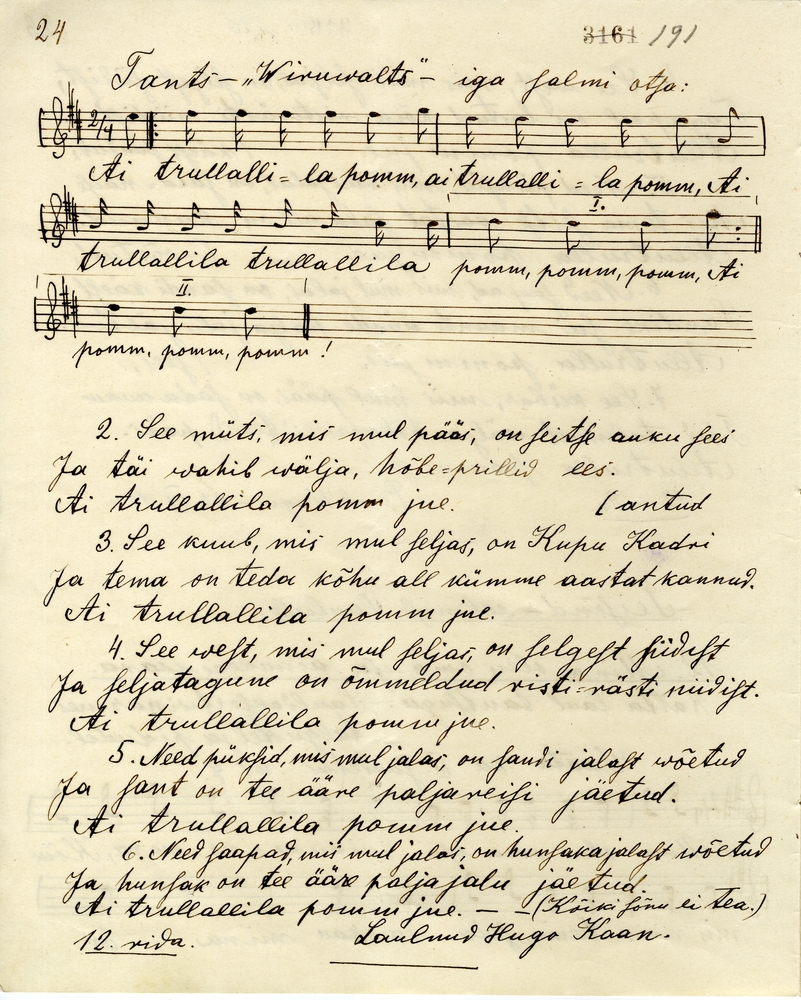 24
3161 191
Tants – „Wiruwalts" – iga salmi otsa:
2/4
Ai trullalli = la pomm, ai trullalli = la pomm, Ai
I.
trullallila trullallila pomm, pomm, pomm, Ai
II.
pomm, pomm, pomm!
2. See müts, mis mul pääs, on seitse auku sees
Ja täi wahib wälja, hõbe=prillid ees.
Ai trullallila pomm jne. [antud
3. See kuub, mis mul seljas, on Kupu Kadri
Ja tema on teda kõhu all kümme aastat kannud.
Ai trullallila pomm jne.
4. See west, mis mul seljas, on selgest siidist
Ja seljatagune on õmmeldud risti=rästi niidist.
Ai trullallila pomm jne.
5. Need püksid, mis mul jalas, on sandi jalast wõetud
Ja sant on tee ääre paljareisi jäetud.
Ai trullallila pomm jne.
6. Need saapad, mis mul jalas, on hunsaka jalast wõetud
Ja hunsak on tee ääre paljajalu jäetud.
Ai trullallila pomm jne. – – (Kõiki sõnu ei tea.)
12. rida. Laulnud Hugo Kaan.